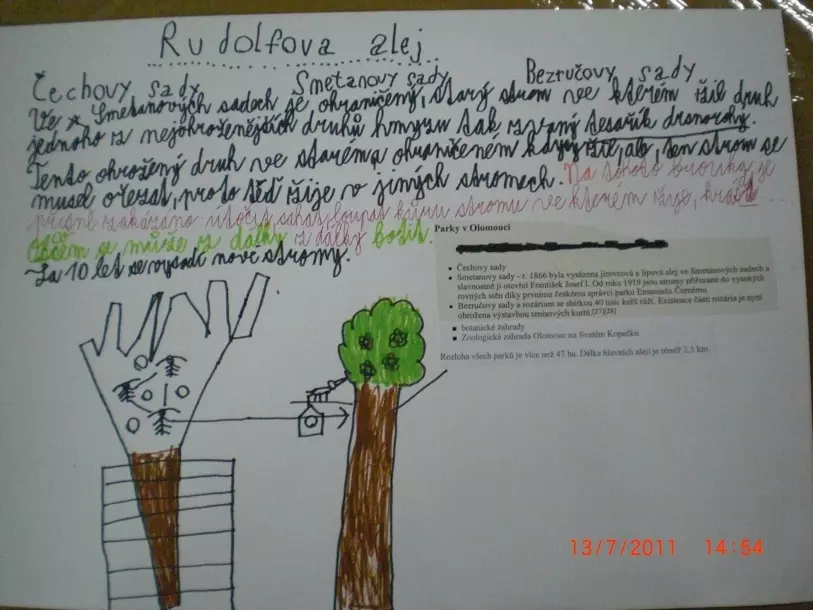 Rudolfova alej
Čechovy sady Smetanovy sady Bezručovy sady
Ve Smetanových sadech je ohraničený, starý strom ve kterém žil druh
jednoho z nejohroženějších druhů hmyzu tak zvaný tesařík drsnorohý.
Tento ohrožený druh ve starém a ohraničeném když žije, ale, ten strom se
musel ořezat, proto teď žije v jiných stromech. Na tohoto brouka je
přísně zakázáno: útočit, sahat, loupat kůru stromu ve kterém žije, krást...
se může z dálky z dálky
Za 10 let se vysadí nové stromy.
Parky v Olomouci
• Čechovy sady
• Smetanovy sady - r. 1866 byla vysázena jírovcová a lipová alej ve Smetanových sadech a
slavnostně ji otevřel František Josef I. Od roku 1919 jsou stromy přiřezané do vysokých
rovných stěn díky prvnímu českému správci parku Emanuelu Černému.
• Bezručovy sady a rozárium se sbírkou 40 tisíc keřů růží. Existence části rozária je nyní
ohrožena výstavbou tenisových kurtů.[27][28]
▪ botanické zahrady
▪ Zoologická zahrada Olomouc na Svatém Kopečku
Rozloha všech parků je více než 47 ha. Délka hlavních alejí je téměř 2,5 km.
13/7/2011 14:54